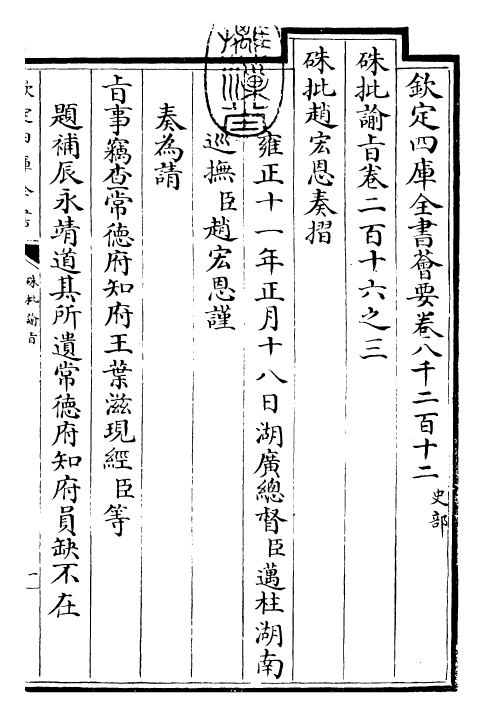 欽定四庫全書薈要卷八千二百十二 史部
硃批諭旨卷二百十六之三
硃批趙宏恩奏摺
雍正十一年正月十八日湖廣總督臣邁柱湖南
巡撫臣趙宏恩謹
奏為請
旨事竊查常德府知府王葉滋現經臣等
題補辰永靖道其所遺常德府知府員缺不在
硃批諭旨
一